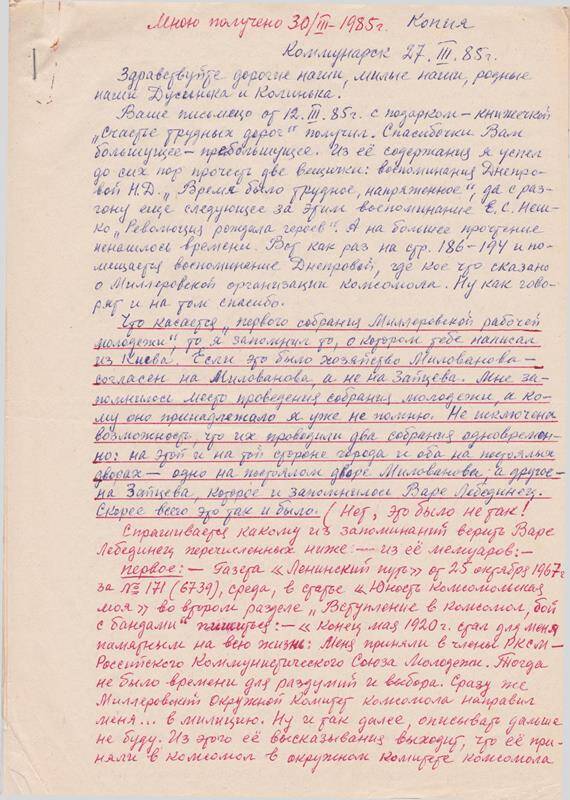 Мною получено 30/III-1985г. Копия
Коммунарск 27.III.85г.
Здравствуйте дорогие наши, милые наши, родные
наши Дусинька и Колинька.
Ваше письмецо от 12.III.85г. с подарком-книжечкой
„Счастье трудных дорог" получил. Спасибочки Вам
большущее-пребольшущее. Из её содержания я успел
до сих пор прочесть две вещички: воспоминания Днепро-
вой Н.Д. „Время было трудное, напряженное", да с раз-
гону еще следующее за этим воспоминание Е.С. Неш-
ко „Революция рождала героев". А на большее прочтение
ненашлось времени. Вот как раз на стр. 186-194 и по-
мещается воспоминание Днепровой, где кое что сказано
о Миллеровской организации комсомола. Ну как гово-
рят и на том спасибо.
Что касается „первого собрания Миллеровской рабочей
молодежи", то я запомнил то, о котором тебе написал
из Киева. Если это было хозяйство Милованова-
согласен на Милованова, а не на Зайцева. Мне за-
помнилось место проведения собрания молодежи, а ко-
му оно принадлежало я уже не помню. Не исключена
возможность что их проводили два собрания одновремен-
но: на этой и на той стороне города и оба на постоялых
дворах - одно на постоялом дворе Миловановы, а другое-
на Зайцева, которое и запомнилось Варе Лебединец.
Скорее всего это так и было. (Нет, это было не так!
Спрашивается какому из запоминаний верить Варе
Лебединец перечисленных ниже: - из её мемуаров:-
первое:- Газета «Ленинский путь» от 25 октября 1967г
за № 171 (6739), среда, в статье «Юность комсомольская
моя» во втором разделе „Вступление в комсомол, бой
с бандами" пишится:- «Конец мая 1920г. стал для меня
памятным на всю жизнь: Меня приняли в члены РКСМ-
Российского Коммунистического Союза Молодежи. Тогда
не было времени для раздумий и выбора. Сразу же
Миллеровский Окружной Комитет комсомола направил
меня... в милицию. Ну и так далее, описывать дальше
не буду. Из этого её высказывания выходит, что её при-
няли в комсомол в окружном комитете комсомола